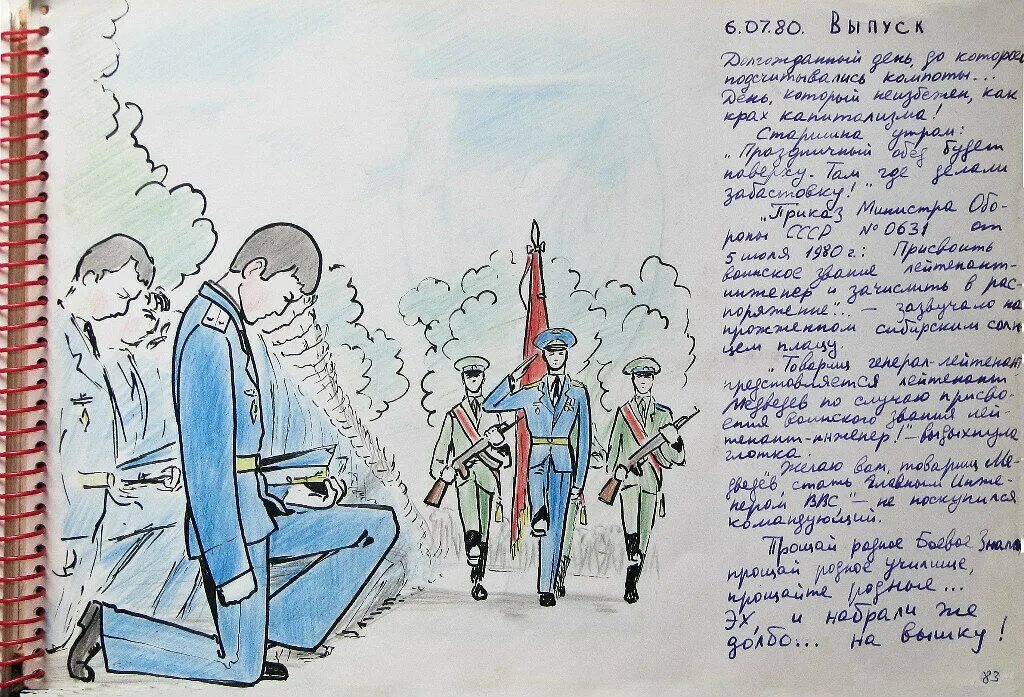 6.07.80. Выпуск
Долгожданный день, до которого
подсчитывались компоты...
День, который неизбежен, как
крах капитализма!
Старшина утром:
„Праздничный обед будет
наверху. Там, где делали
забастовку!"
„Приказ Министра Обо-
роны СССР № 0631 от
5 июля 1980 г: Присвоить
воинское звание лейтенант-
инженер и зачислить в рас-
поряжение"... – зазвучало на
прожженном сибирским солн-
цем плацу.
„Товарищ генерал-лейтенант
представляется лейтенант
Медведев по случаю присво-
ения воинского звания лей-
тенант-инженер!" – выдыхнула
глотка.
„Желаю вам, товарищ Ме-
дведев стать Главным Инже-
нером ВВС" – не поскупился
командующий.
Прощай родное Боевое Знамя
прощай родное училище,
прощайте родные...
Эх и набрали же
долбо... на вышку!
83